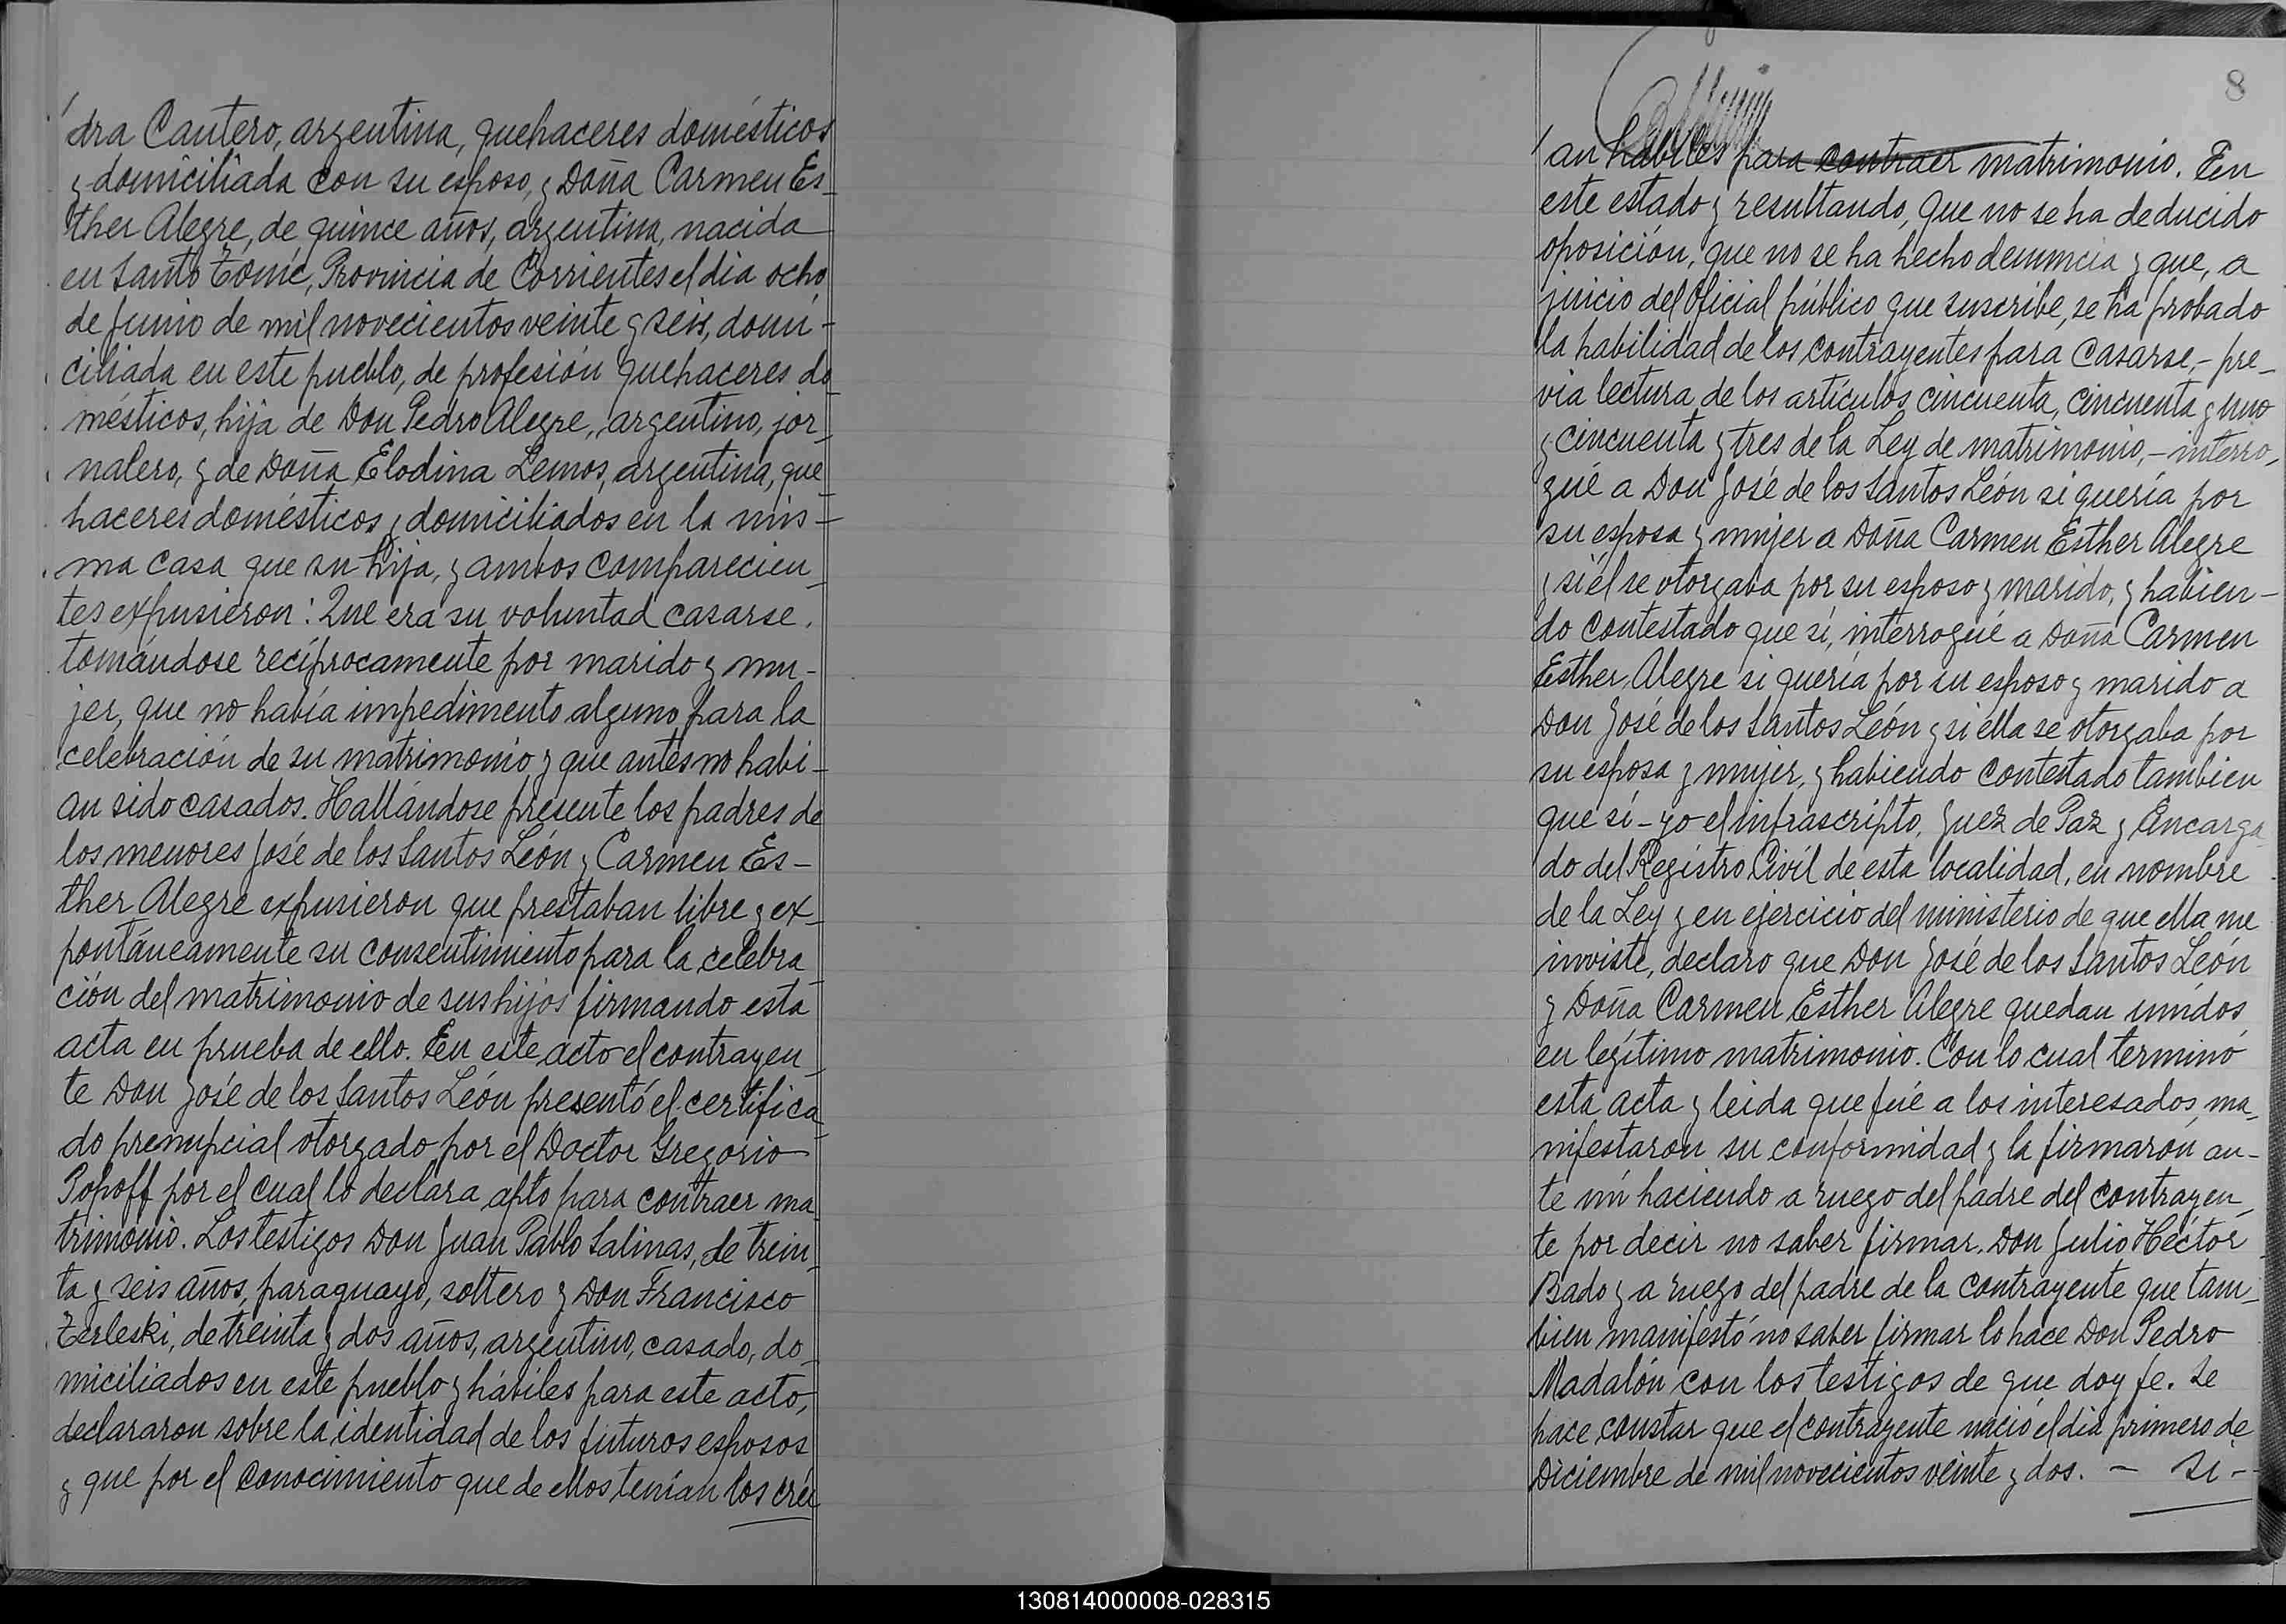 dra Cantero, argentina, quehaceres domésticos
y domiciliada con su esposo, y Doña Carmen Es-
ther Alegre, de quince años, argentina, nacida
en Santo Tomé, Provincia de Corrientes el dia ocho
de Junio de mil novecientos veinte y seis, domi-
ciliada en este pueblo, de profesión quehaceres do
mésticos, hija de Don Pedro Alegre, argentino, jor-
nalero, y de Doña Elodina Lemos, argentina, que
haceres domésticos y domiciliados en la mis-
ma casa que su hija, y ambos comparecien-
tes expusieron: Que era su voluntad casarse,
tomándose recíprocamente por marido y mu-
jer, que no había impedimento alguno para la
celebración de su matrimonio y que antes no habi-
an sido casados. Hallándose presente los padres de
los menores José de los Santos León y Carmen Es-
ther Alegre expusieron que prestaban libre y ex-
pontáneamente su consentimiento para la celebra
ción del matrimonio de sus hijos firmando esta
acta en prueba de ello. En este acto el contrayen-
te Don José de los Santos León presentó el certifica
do prenupcial otorgado por el Doctor Gregorio
Popoff por el cual lo declara apto para contraer ma
trimonio. Los testigos Don Juan Pablo Salinas, de trein-
ta y seis años, paraguayo, soltero y Don Francisco
Zerleski, de treinta y dos años, argentino, casado, do-
miciliados en este pueblo y hábiles para este acto,
declararon sobre la identidad de los futuros esposos
y que por el conocimiento que de ellos tenían los creí
8
an hábiles para contraer matrimonio. En
este estado y resultando, que no se ha deducido
oposición, que no se ha hecho denuncia y que, a
juicio del Oficial público que suscribe, se ha probado
la habilidad de los contrayentes para casarse,- pre-
via lectura de los artículos cincuenta, cincuenta y uno
y cincuenta y tres de la Ley de matrimonio,- interro-
gué a Don José de los Santos León si quería por
su esposa y mujer a Doña Carmen Esther Alegre
y si él se otorgaba por su esposo y marido, y habien-
do contestado que sí, interrogué a Doña Carmen
Esther Alegre si quería por su esposo y marido a
Don José de los Santos León y si ella se otorgaba por
su esposa y mujer, y habiendo contestado tambien
que sí - yo el infrascripto, Juez de Paz y Encarga
do del Registro Civíl de esta localidad, en nombre
de la Ley y en ejercicio del ministerio de que ella me
inviste, declaro que Don José de los Santos León
y Doña Carmen Esther Alegre quedan unidos
en legítimo matrimonio. Con lo cual terminó
esta acta y leida que fué a los interesados, ma-
nifestaron su conformidad y la firmaron an-
te mi haciendo a ruego del padre del contrayen-
te por decir no saber firmar. Don Julio Héctor
Bado y a ruego del padre de la contrayente que tam-
bien manifestó no saber firmar lo hace Don Pedro
Madalón con los testigos de que doy fe. Se
hace constar que el contrayente nació el dia primero de
Diciembre de mil novecientos veinte y dos. - Si-
130814000008-028315